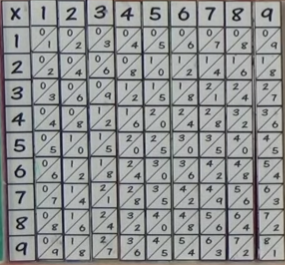 X 1 2 3 4 5 6 7 8 9
1 0/1 0/2 0/3 0/4 0/5 0/6 0/7 0/8 0/9
2 0/2 0/4 0/6 0/8 1/0 1/2 1/4 1/6 1/8
3 0/3 0/6 0/9 1/2 1/5 1/8 2/1 2/4 2/7
4 0/4 0/8 1/2 1/6 2/0 2/4 2/8 3/2 3/6
5 0/5 1/0 1/5 2/0 2/5 3/0 3/5 4/0 4/5
6 0/6 1/2 1/8 2/4 3/0 3/6 4/2 4/8 5/4
7 0/7 1/4 2/1 2/8 3/5 4/2 4/9 5/6 6/3
8 0/8 1/6 2/4 3/2 4/0 4/8 5/6 6/4 7/2
9 0/9 1/8 2/7 3/6 4/5 5/4 6/3 7/2 8/1